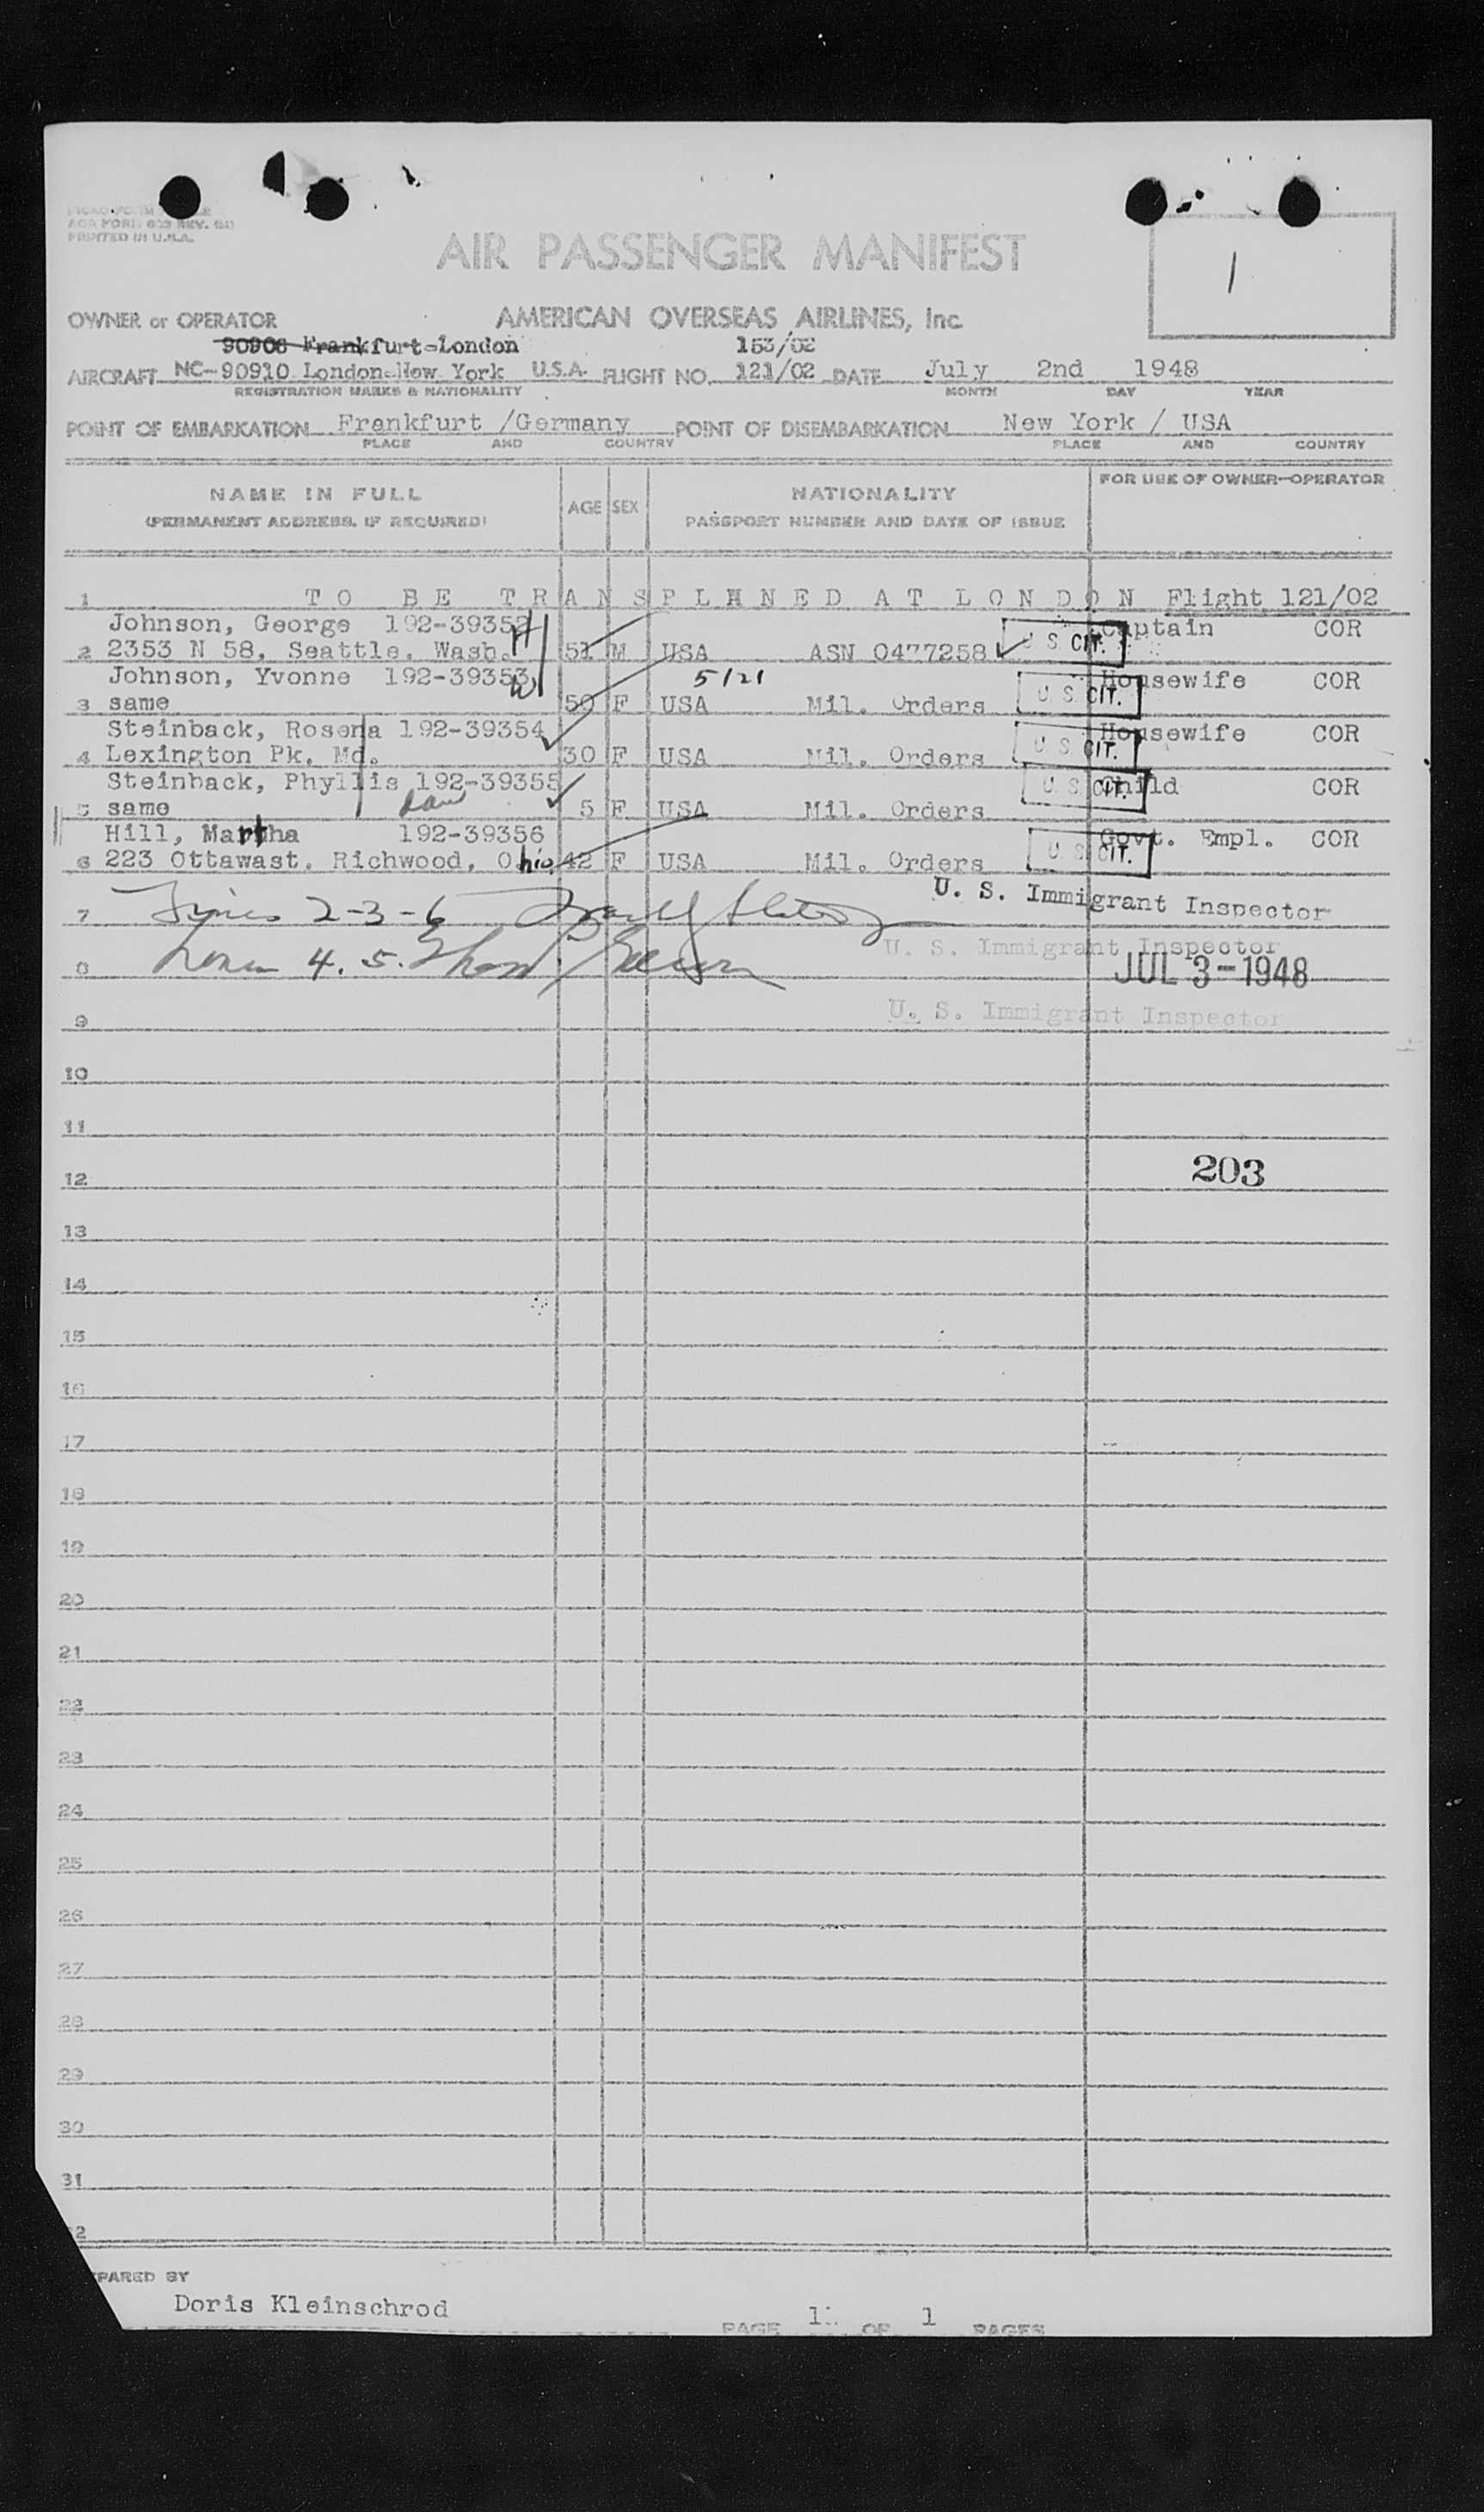 PRINTED IN U.S.A.
1
AIR PASSENGER MANIFEST
OWNER or OPERATOR AMERICAN OVERSEAS AIRLINES, Inc.
90906 Frankfurt-London 153/02
AIRCRAFT NC-90910 London-New York U.S.A. FLIGHT NO. 121/02 DATE July 2nd 1948
REGISTRATION MARKS & NATIONALITY MONTH DAY YEAR
POINT OF EMBARKATION Frankfurt /Germany POINT OF DISEMBARKATION New York / USA
PLACE AND COUNTRY PLACE AND COUNTRY
NAME IN FULL AGE SEX NATIONALITY FOR USE OF OWNER-OPERATOR
(PERMANENT ADDRESS, IF REQUIRED) PASSPORT NUMBER AND DATE OF ISSUE
1 TO BE TRANSPLANED AT LONDON Flight 121/02
Johnson, George 192-39352 H Captain COR
2 2353 N 58, Seattle, Wash. 51 M USA ASN 0477258 U.S. CIT.
Johnson, Yvonne 192-39353 W 5/21 Housewife COR
3 same 50 F USA Mil. Orders U.S. CIT.
Steinback, Rosena 192-39354 Housewife COR
4 Lexington Pk. Md. 30 F USA Mil. Orders U.S. CIT.
Steinback, Phyllis 192-39355 Child COR
5 same 5 F USA Mil. Orders U.S. CIT.
Hill, Martha 192-39356 Govt. Empl. COR
6 223 Ottawast. Richwood, Ohio 42 F USA Mil. Orders U.S. CIT.
U. S. Immigrant Inspector
7 Lines 2-3-6
U. S. Immigrant Inspector
8 Lines 4. 5. JUL 3-1948
9 U. S. Immigrant Inspector
10
11
12 203
13
14
15
16
17
18
19
20
21
22
23
24
25
26
27
28
29
30
31
2
PARED BY
Doris Kleinschrod
PAGE 1 OF 1 PAGES